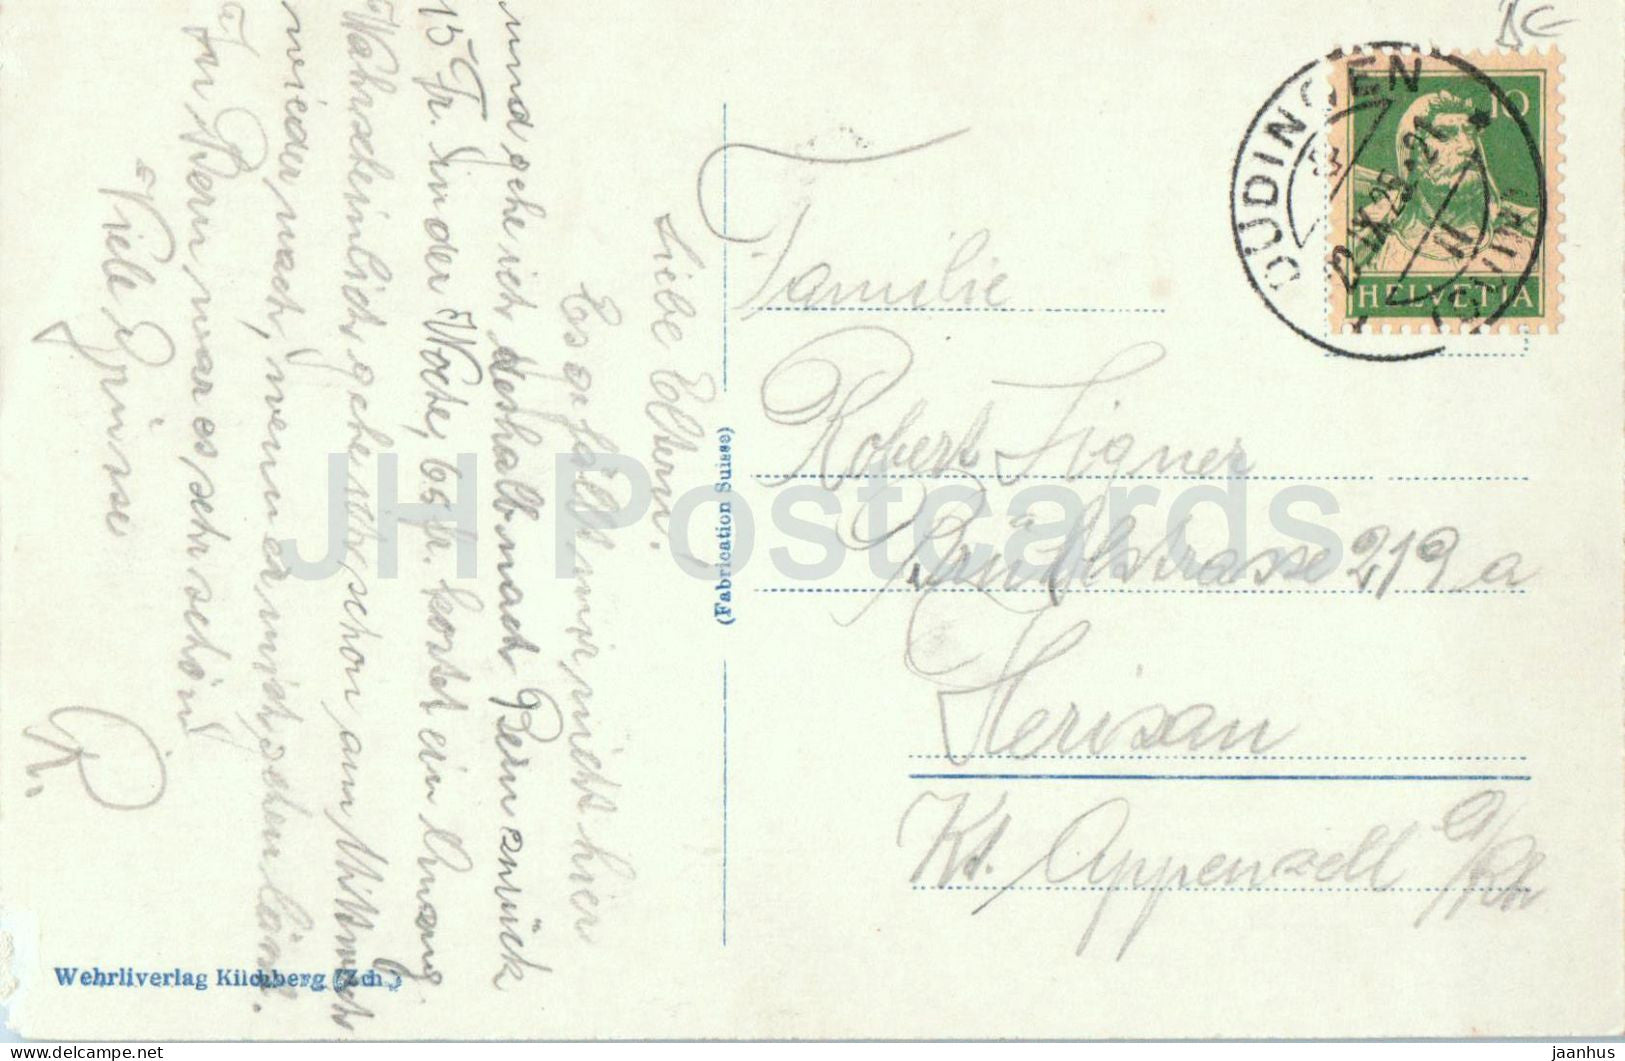 Liebe Eltern.
Es gefällt mir nicht hier
und gehe ich deshalb nach Bern zurück
15 Fr. in der Woche, 65 fr. kostet ein Anzug.
Wahrscheinlich gehe ich schon am Mittwoch
wieder nach, wenn er mich gehen lässt.
In Bern war es sehr schön
Viele Grüsse
R.
Familie
Robert Signer
219a
Herisau
Kt. Appenzell A/Rh
(Fabrication Suisse)
Wehrliverlag Kilchberg (Zch.)
DÜDINGEN
IX.25
10
HELVETIA
JH Postcards
delcampe.net
jaanhus